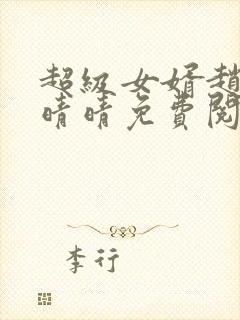 超級女婿趙
晴晴免費閱
李行